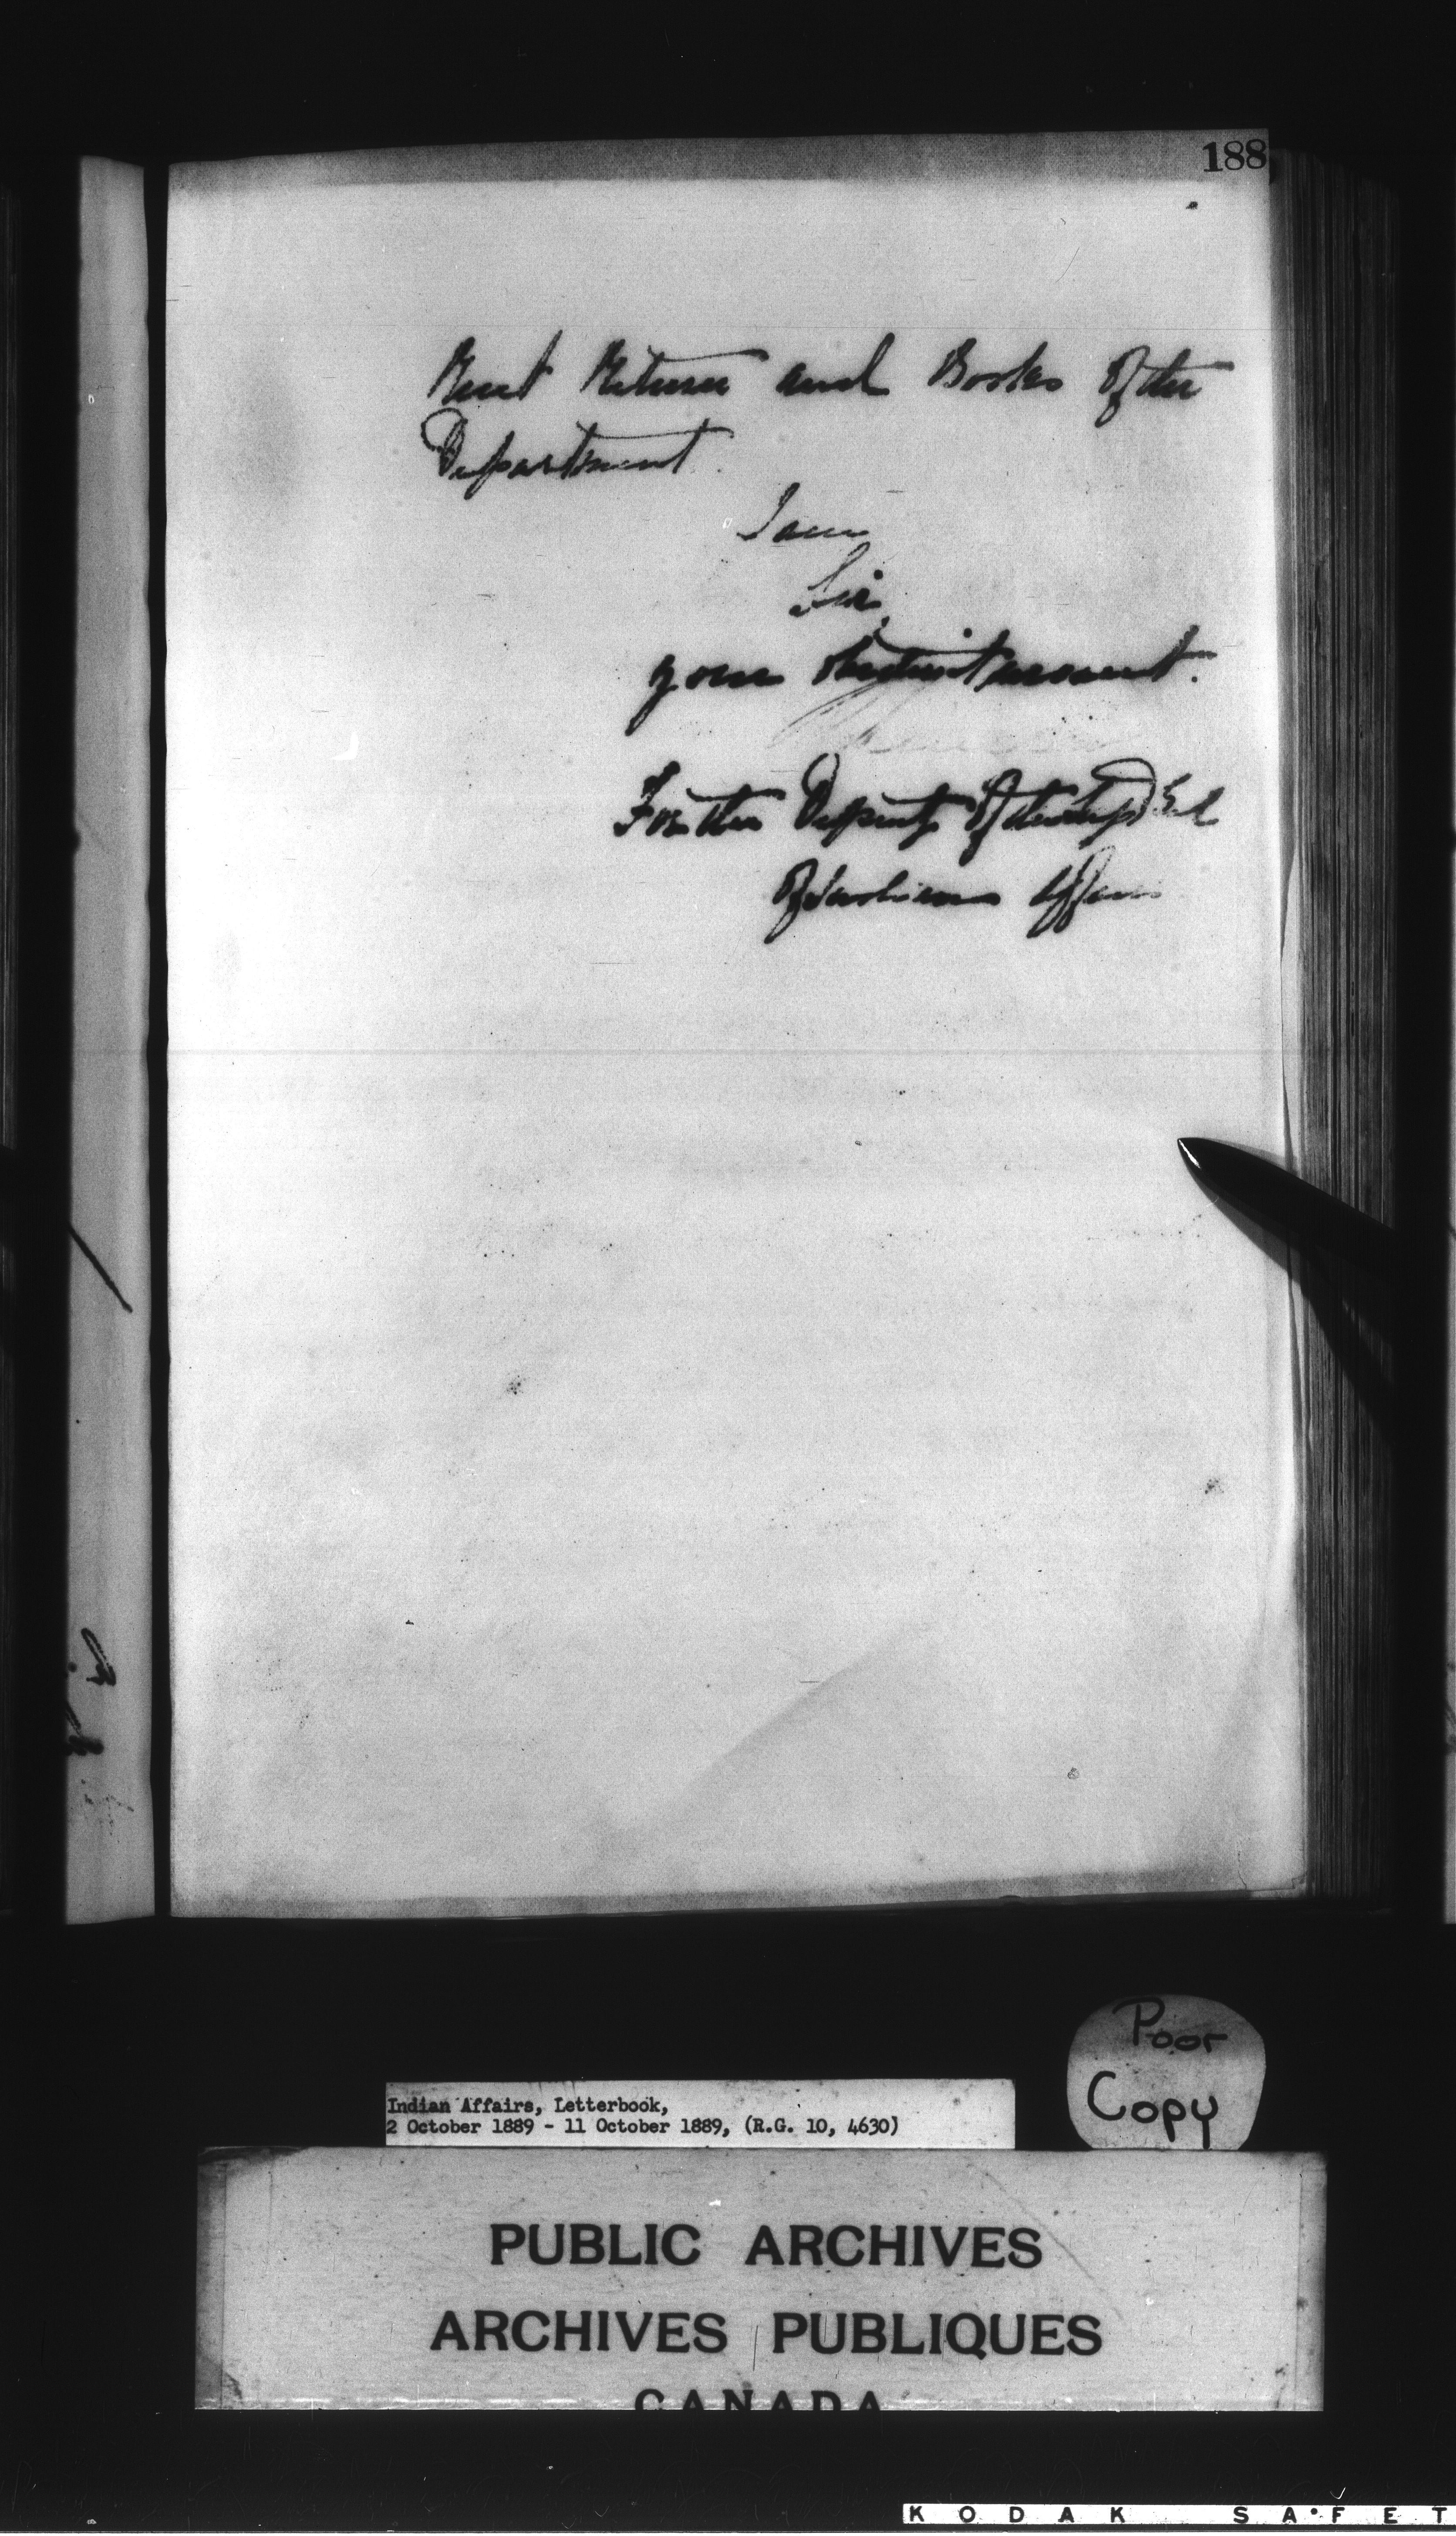 188
Rent Returns and Books of the
Department.
I am
Sir,
your obedient servant.
For the Deputy of the Supt Genl
of Indian Affairs
Poor
Copy
Indian Affairs, Letterbook,
2 October 1889 - 11 October 1889, (R.G. 10, 4630)
PUBLIC ARCHIVES
ARCHIVES PUBLIQUES
CANADA
KODAK SAFET